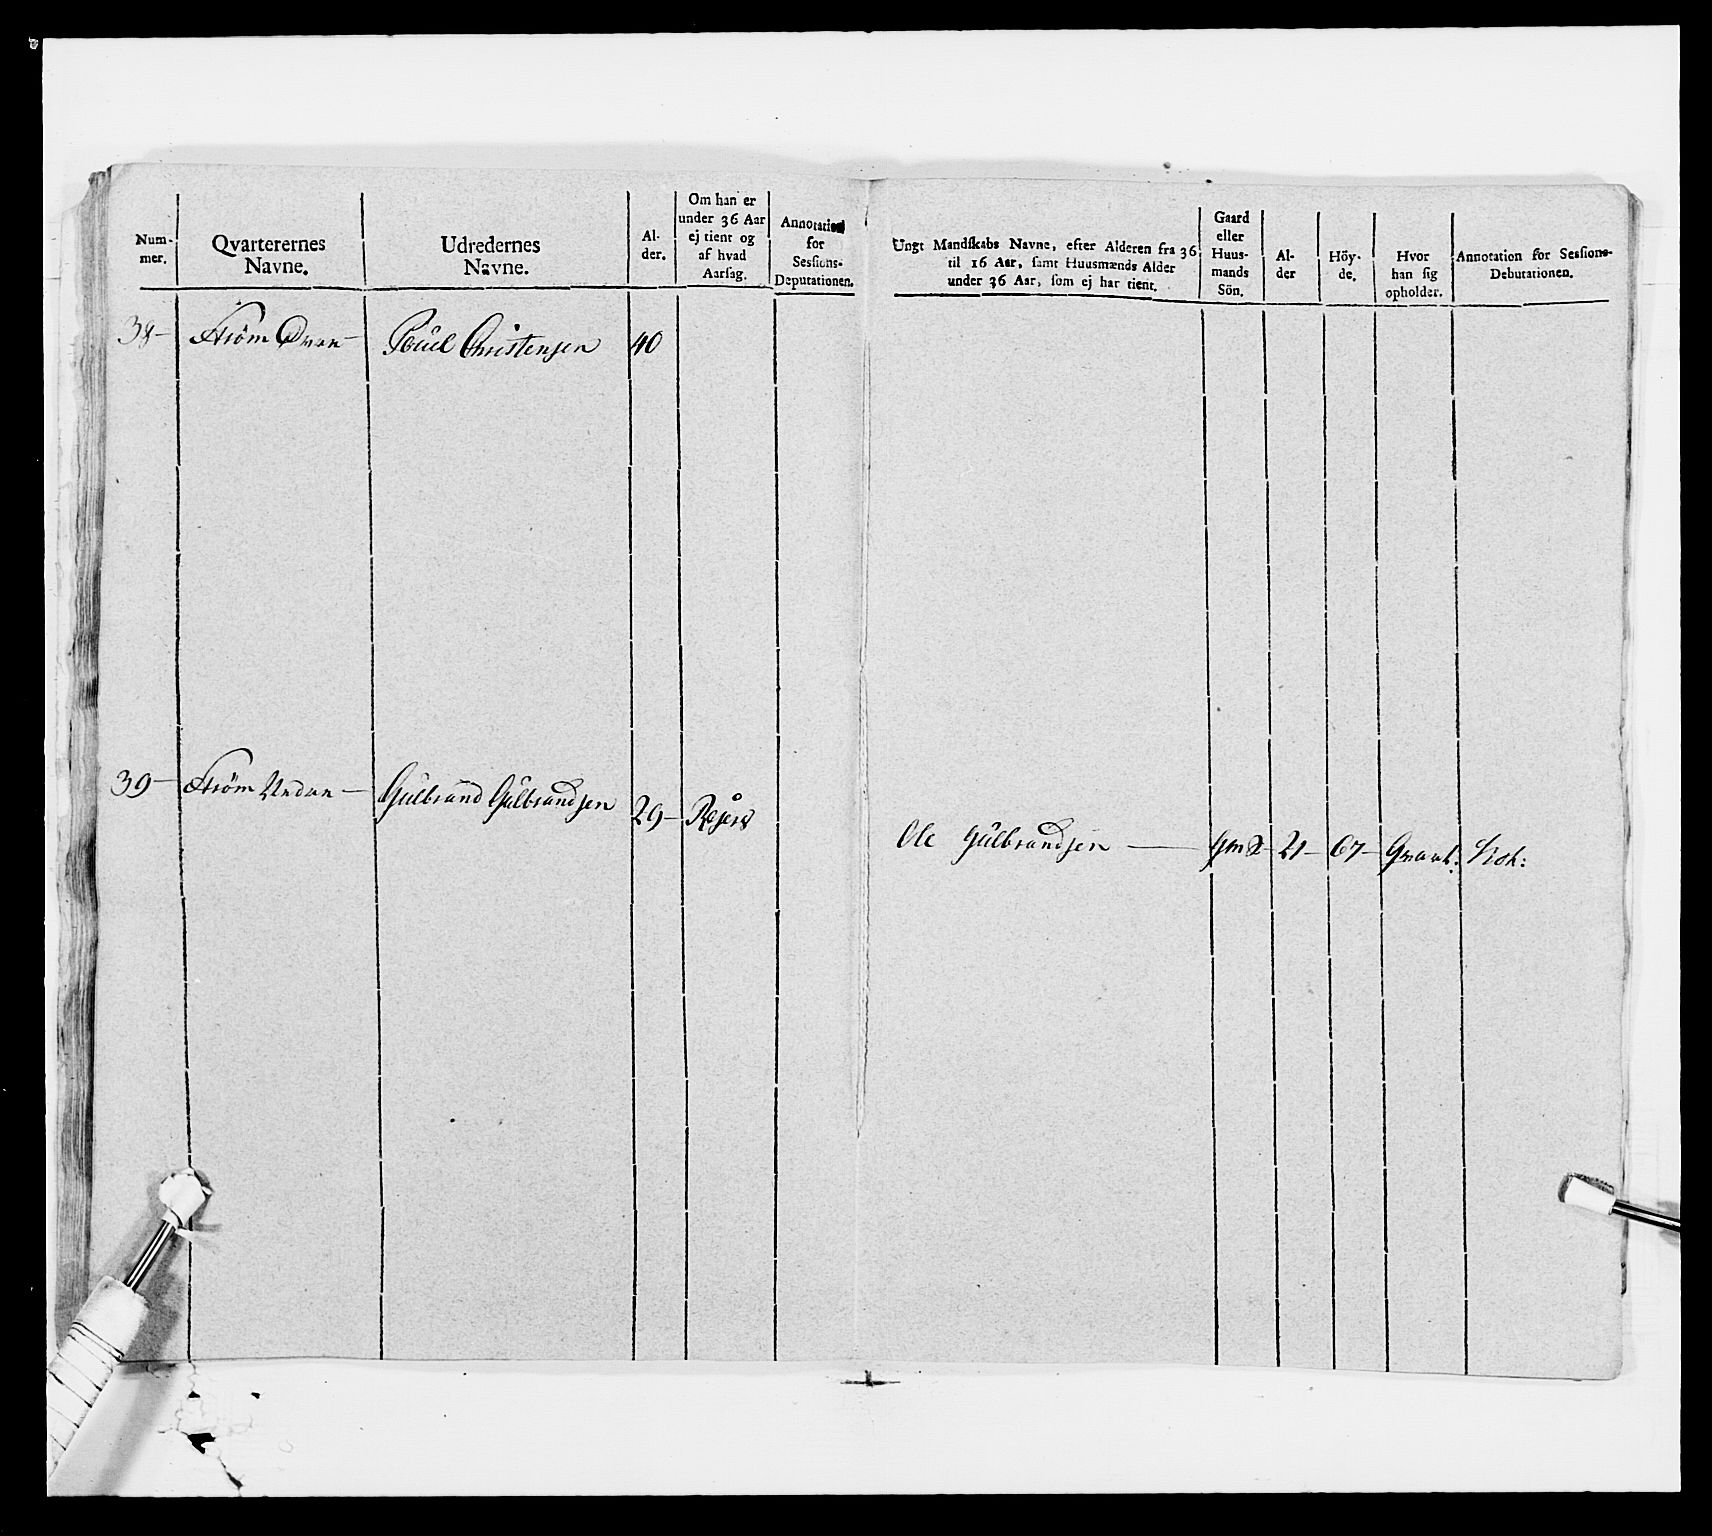 Num-
mer.
Qvarterernes
Navne.
Udredernes
Navne.
Al-
der.
Om han er
under 36 Aar
ej tient og
af hvad
Aarsag.
Annotation
for
Sessions-
Deputationen.
Ungt Mandskabs Navne, efter Alderen fra 36
til 16 Aar, samt Huusmænds Alder
under 36 Aar, som ej har tient.
Gaard
eller
Huus-
mands
Sön.
Al-
der
Höy-
de.
Hvor
han sig
opholder.
Annotation for Sessions-
Debutationen.
38- Ström Øvre- Poül Christensen 40
39- Ström Nedre- Gülbrand Gülbrandsen 29-
Ole Gülbrandsen 21- 67-